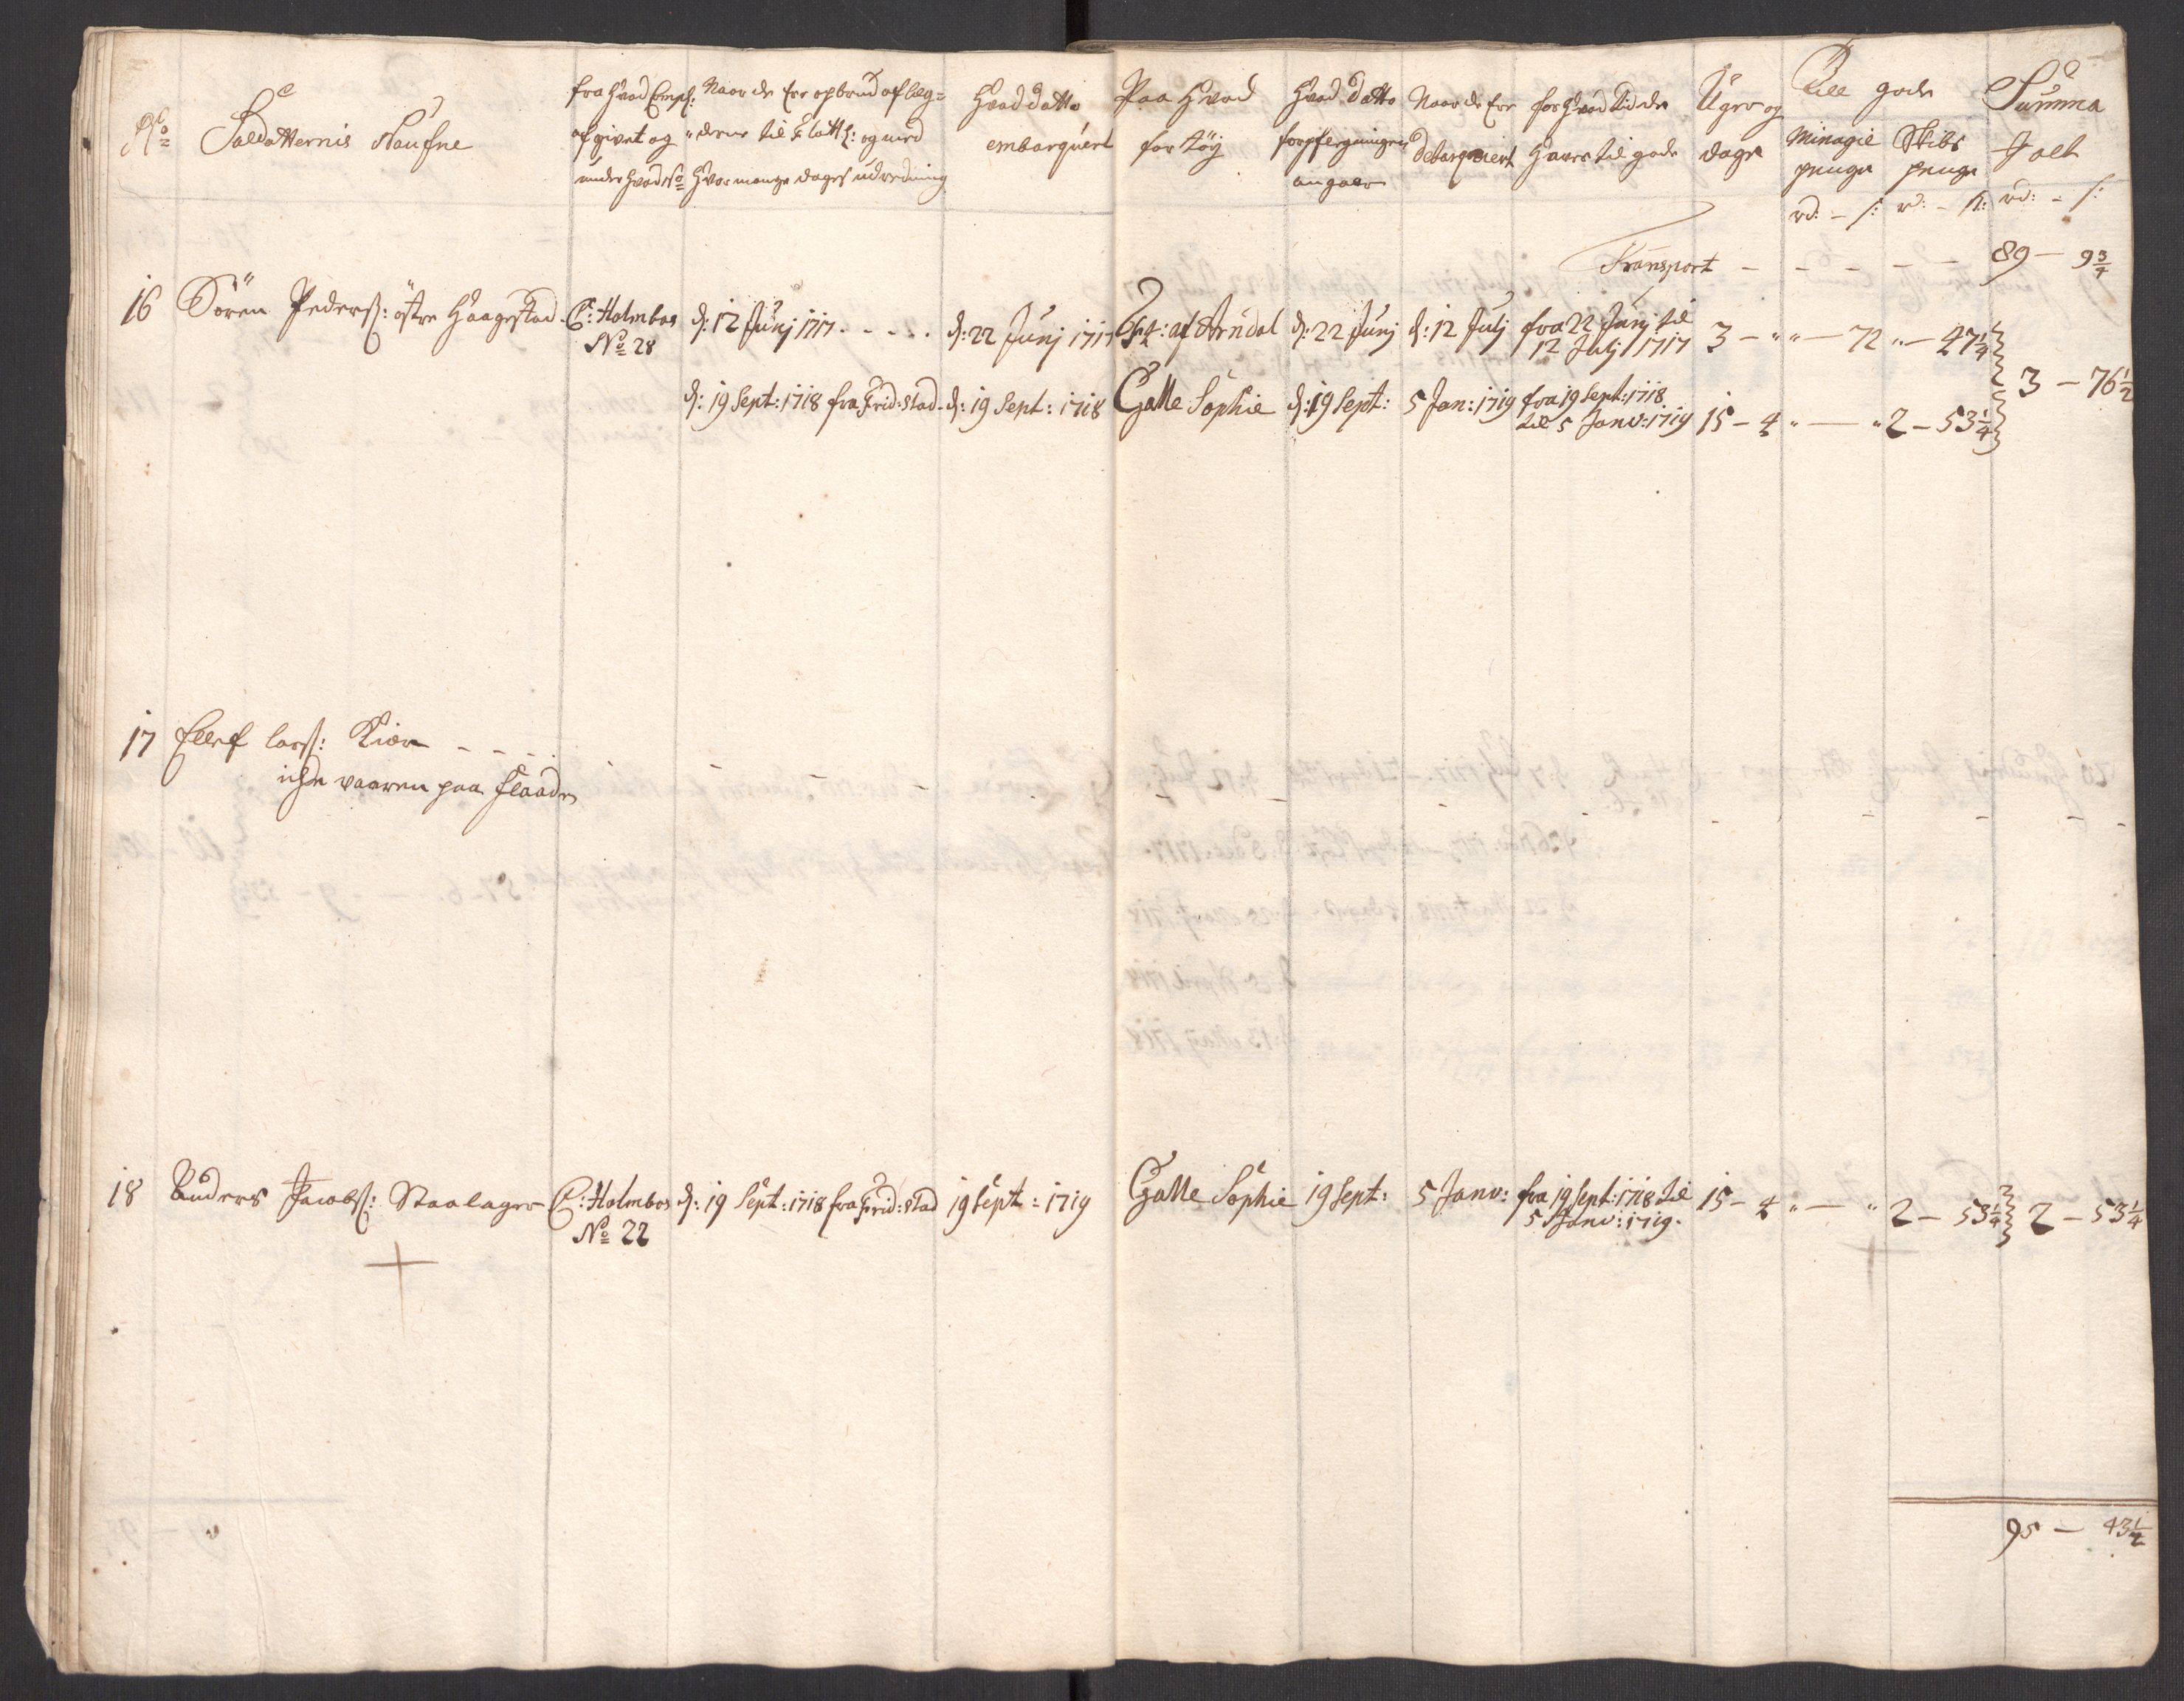 No Soldatternis Naufne
fra hvad Comp: afgivet og under hvad No
Naar de Ere opbrud af læg= derne til Flott: og med hvor mange dages udredning
Hvad datto embarquert
Paa hvad for töy
Hvad datto forpflegningen angaar
Naar de Ere debarqviert
for hvad Tid de haver til gode
Uger og dage
Till gode
Minagie penge
Skibs penge
Summa Jalt
rd: – s: rd: – s: rd: – s:
Transport – – – – – 89 – 9 3/4
16 Sören Peders: östre Haagestad. C: Holmboe No 28 d: 12 Junj 1717. - - - . d: 22 Junj 1717 af Arndal d: 22 Junj d: 12 Julj fra 22 Junj til 12 Julj 1717 3 – " " – 72 " – 47 1/4
d: 19 Sept: 1718 fra Frid: Stad. d: 19 Sept: 1718 Galle Sophie d: 19 Sept: 5 Jan: 1719 fra 19 Sept: 1718 til 5 Janv: 1719 15 – 4 " – " 2 – 53 1/4
3 – 76 1/2
17 Ellef Lars: Kiær - - - -
iche vaaren paa Flaaden
18 Anders Jacobs: Staalager C: Holmboe No 22 d: 19 Sept: 1718 fra Frid: Stad 19 Sept: 1719 Galle Sophie 19 Sept: 5 Janv: fra 19 Sept: 1718 til 5 Janv: 1719. 15 – 4 " – " 2 – 53 1/4 2 – 53 1/4
95 – 43 1/2